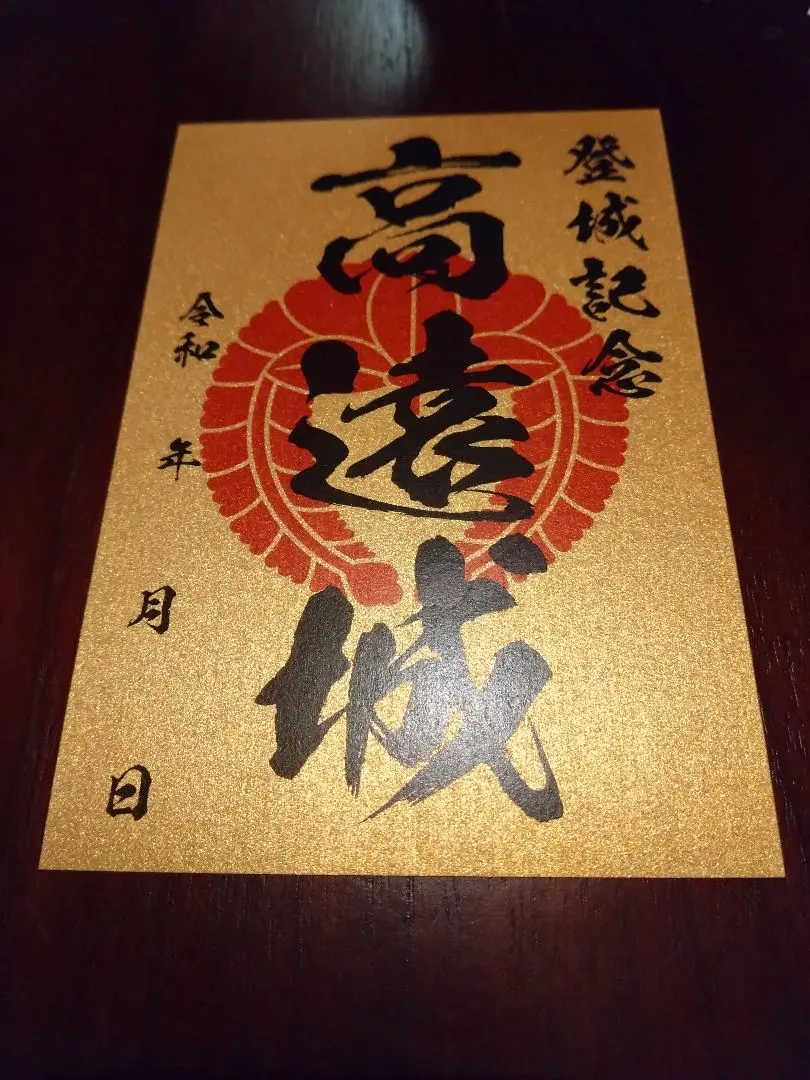 登城記念
高遠城
令和 年 月 日